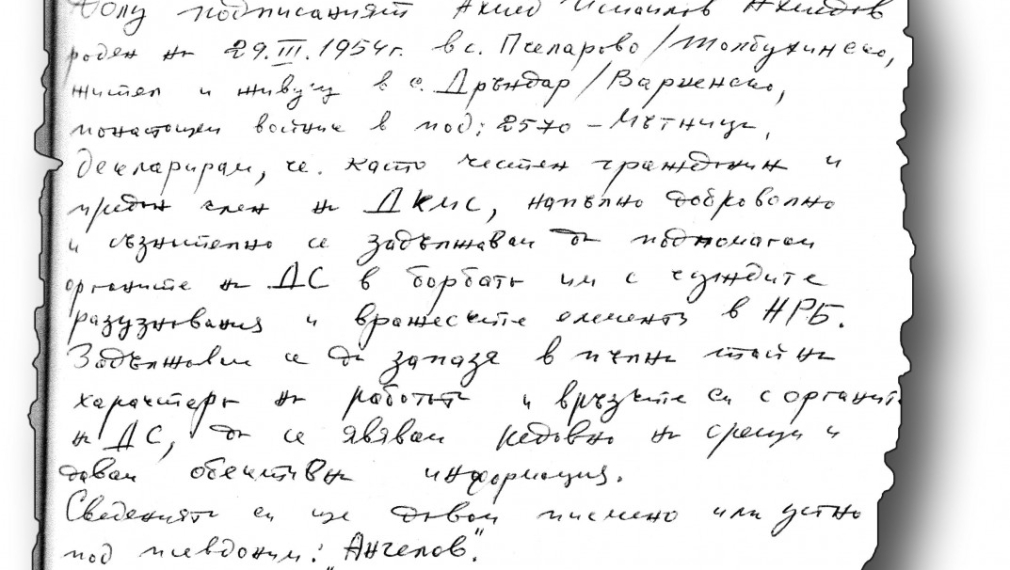 Долу подписаният Ахмед Исмаилов Ахмедов
роден на 29.III.1954г. в с. Пчеларово /Толбухинско,
жител и живущ в с. Дръндар /Варненско,
понастоящем войник в под. 2570 – Мътница,
декларирам, че като честен гражданин и
предан член на ДКМС, напълно доброволно
и съзнателно се задължавам да подпомагам
органите на ДС в борбата им с чуждите
разузнавания и вражеските елементи в НРБ.
Задължавам се да запазя в пълна тайна
характера на работата и връзките си с органите
на ДС, да се явявам редовно на срещи и
давам обективна информация.
Сведенията си ще давам писмено или устно
под псевдоним: "Ангелов".